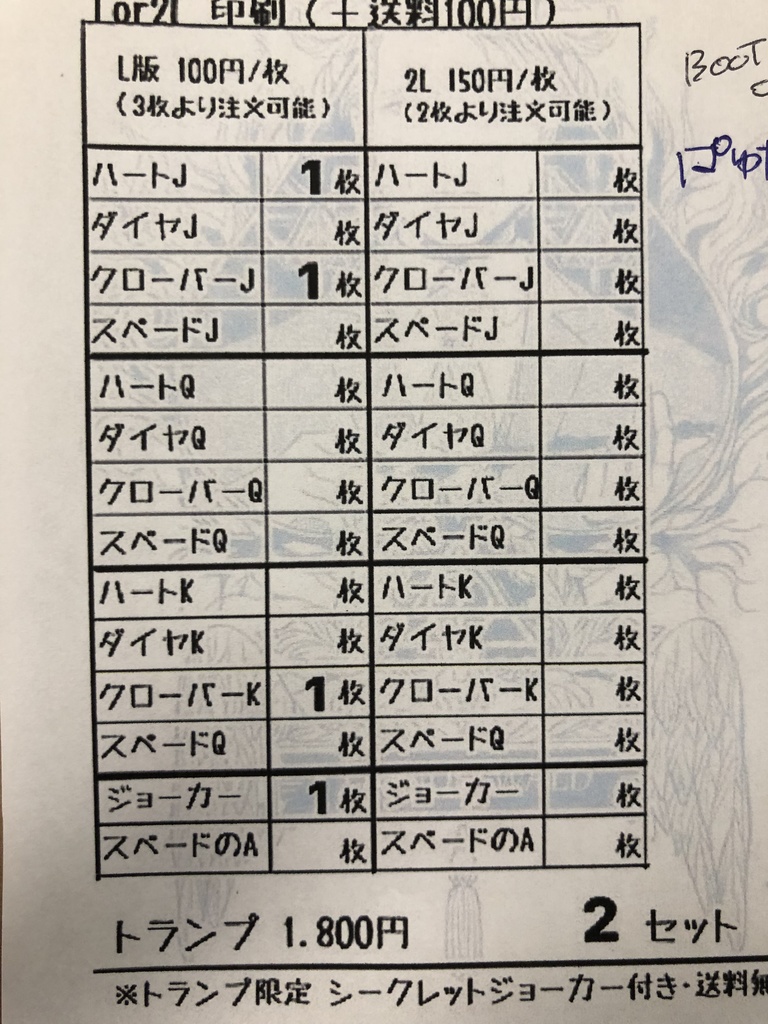 Lor2L 印刷（＋送料100円）
L版 100円/枚 2L 150円/枚
（3枚より注文可能） （2枚より注文可能）
ハートJ 1枚 ハートJ 枚
ダイヤJ 枚 ダイヤJ 枚
クローバーJ 1枚 クローバーJ 枚
スペードJ 枚 スペードJ 枚
ハートQ 枚 ハートQ 枚
ダイヤQ 枚 ダイヤQ 枚
クローバーQ 枚 クローバーQ 枚
スペードQ 枚 スペードQ 枚
ハートK 枚 ハートK 枚
ダイヤK 枚 ダイヤK 枚
クローバーK 1枚 クローバーK 枚
スペードQ 枚 スペードQ 枚
ジョーカー 1枚 ジョーカー 枚
スペードのA 枚 スペードのA 枚
トランプ 1.800円 2 セット
※トランプ限定 シークレットジョーカー付き・送料無
BOOT